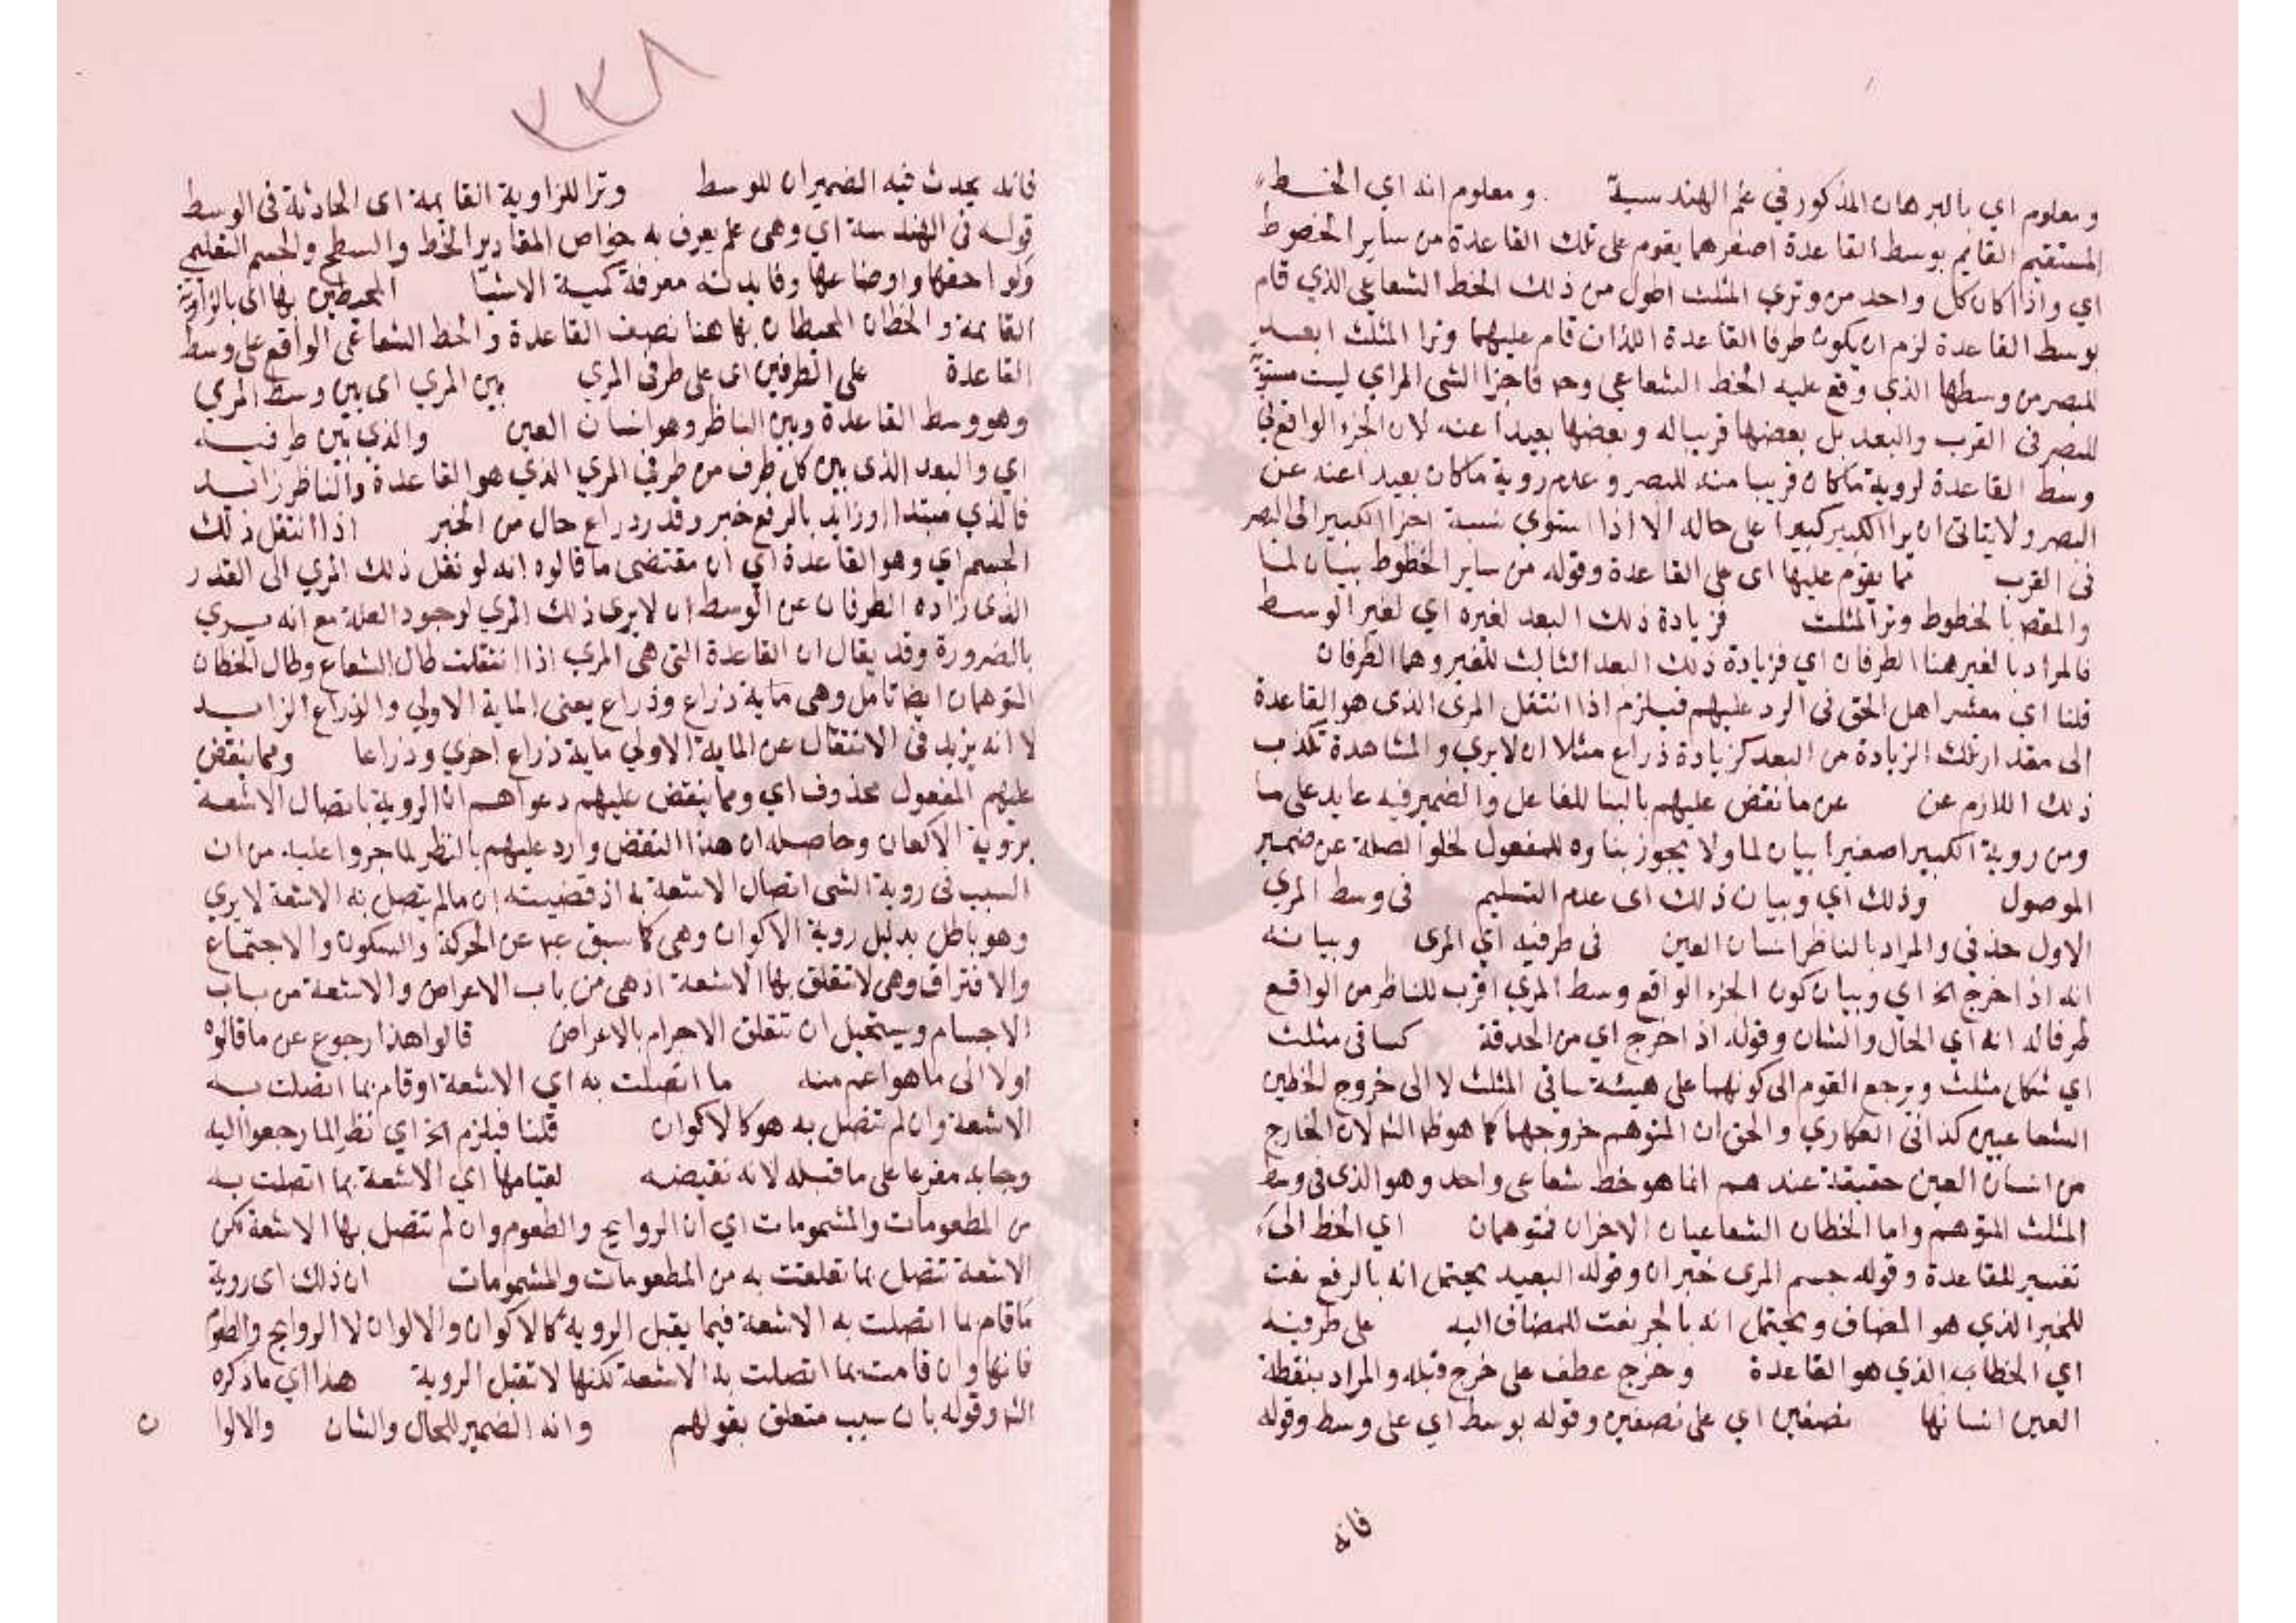 ومعلوم اي بالبرهان المذكور في علم الهندسية ومعلوم انه اي الخط
المستقيم القايم بوسط القاعدة اصغرهما يقوم على تلك القاعدة من ساير الخضوط
اي واذا كان كل واحد من وتري المثلث اطول من ذلك الخط الشعاعي الذي قام
بوسط القاعدة لزم ان يكون طرفا القاعدة اللذان قام عليهما وترا المثلث ابعد
للبصر من وسطها الذي وقع عليه الخط الشعاعي وح فاجزا الشي المراي ليست مستوية
للبصر في القرب والبعد بل بعضها قريبا له وبعضها بعيدا عنه لان الجزء الواقع في
وسط القاعدة لروية ماكان قريبا منه للبصر وعدم روية ماكان بعيدا عنه عن
البصر ولا يتاتى ان يرا الكبير كبيرا على حاله الا اذا استوي نسبة اجزا الكبير الى البصر
في القرب مما يقوم عليها اى على القاعدة وقوله من ساير الخطوط بيان لما
والمقصـ بالخطوط وترا المثلث فزيادة ذلك البعد لغيره اي لغير الوسط
فالمراد بالغير هنا الطرفان اي فزيادة ذلك البعد الثالث للغير وهما الطرفان
قلنا اي معشر اهل الحق في الرد عليهم فيلزم اذا انتقل المرى الذى هو القاعدة
الى مقدار تلك الزيادة من البعد كزيادة ذراع مثلا ان لا يري والمشاهدة تكذب
ذلك اللازم عن عن ما نقض عليهم بالبنا للفاعل والضمير فيه عايد على ما
ومن روية الكبير اصغيرا بيان لما ولا يجوز بناوه للمفعول لخلوا الصلة عن ضمير
الموصول وذلك اي وبيان ذلك اى عدم التسليم فى وسط المري
الاول حذفى والمراد بالناظر انسان العين فى طرفيه اي المرى وبيانه
انه اذا خرج الخ اي وبيان كون الجزء الواقع وسط المري اقرب للناظر من الواقع
طرفا له انه اي الحال والشان وقوله اذ اخرج اي من الحدقة كساقى مثلث
اي شكل مثلث ويرجع القوم الى كونهما على هيئة ساقي المثلث لا الى خروج الخطين
الشعاعيين كذا فى العكاري والحق ان المتوهم خروجهما كما هو ظـ الشـ لان الخارج
من انسان العين حقيقة عندهم انما هو خط شعاعى واحد وهو الذى في وسط
المثلث المتوهم واما الخطان الشعاعيان الاخران فمتوهمان اي الخط الى
تفسير للقاعدة وقوله جسم المرى خبر ان وقوله البعيد يحتمل انه بالرفع نعت
للخبر الذي هو المضاف ويحتمل انه بالجر نعت للمضاف اليه على طرفيه
اي الخطاب الذي هو القاعدة وخرج عطف على خرج قبله والمراد بنقطة
العين انسانها نصفين اي على نصفين وقوله بوسط اي على وسط وقوله
فانه
٣٣٨
فانه يحدث فيه الضميران للوسط وترا للزاوية القايمة اى الحادثة في الوسط
قوله فى الهندسة اي وهى علم يعرف به خواص المقادير الخط والسطح والجسم التعليمي
ولواحقها واوضاعها وفايدته معرفة كمية الاشيا المحيطين بها اى بالزاوية
القايمة والخطان المحيطان بها هنا نصف القاعدة والخط الشعاعي الواقع على وسط
القاعدة على الطرفين اى على طرفى المري بين المري اى بين وسط المري
وهو وسط القاعدة وبين الناظر وهو انسان العين والذي بين طرفيه
اي والبعد الذى بين كل طرف من طرفي المري الذي هو القاعدة والناظر زايد
فالذي مبتدا وزايد بالرفع خبر وقدر ذراع حال من الخبر اذا انتقل ذلك
الجسم اي وهو القاعدة اي ان مقتضى ما قالوه انه لو نقل ذلك المري الى القدر
الذى زاده الطرفان عن الوسط ان لا يرى ذلك المري لوجود العلة مع انه يري
بالضرورة وقد يقال ان القاعدة التى هى المري اذا انتقلت طال الشعاع وطال الخطان
المتوهمان ايضا تامل وهى ماية ذراع وذراع يعنى الماية الاولي والذراع الزايد
لا انه يزيد فى الانتقال عن الماية الاولي ماية ذراع اخري وذراعا ومما ينقض
عليهم المفعول محذوف اي ومما ينقض عليهم دعواهم ان الروية باتصال الاشعة
بروية الاكوان وحاصله ان هذا النقض وارد عليهم بالنظر لما جروا عليه من ان
السبب فى روية الشى اتصال الاشعة به اذ قضيته ان مالم يتصل به الاشعة لا يري
وهو باطل بدليل روية الاكوان وهى كما سبق عبـ عن الحركة والسكون والاجتماع
والافتراق وهى لا تتعلق بها الاشعة اذ هى من باب الاعراض والاشعة من باب
الاجسام ويستحيل ان تتعلق الاجرام بالاعراض قالوا هذا رجوع عن ما قالوه
اولا الى ما هو اعم منه ما اتصلت به اي الاشعة او قام بما اتصلت به
الاشعة وان لم تتصل به هو كالاكوان قلنا فيلزم الخ اي نظرا لما رجعوا اليه
وجا به مفرعا على ما قبله لانه نقيضه لقيامها اي الاشعة بما اتصلت به
من المطعومات والمشمومات اي ان الروايح والطعوم وان لم تتصل بها الاشعة لكن
الاشعة تتصل بما تعلقت به من المطعومات والمشمومات ان ذلك اى روية
ما قام بما اتصلت به الاشعة فيما يقبل الروية كالاكوان والالوان لا الروايح والطعوم
فانها وان قامت بما اتصلت به الاشعة لكنها لا تقبل الروية هذا اي ما ذكره
الشـ وقوله بان سبب متعلق بقولهم وانه الضمير للحال والشان والالوا
ن